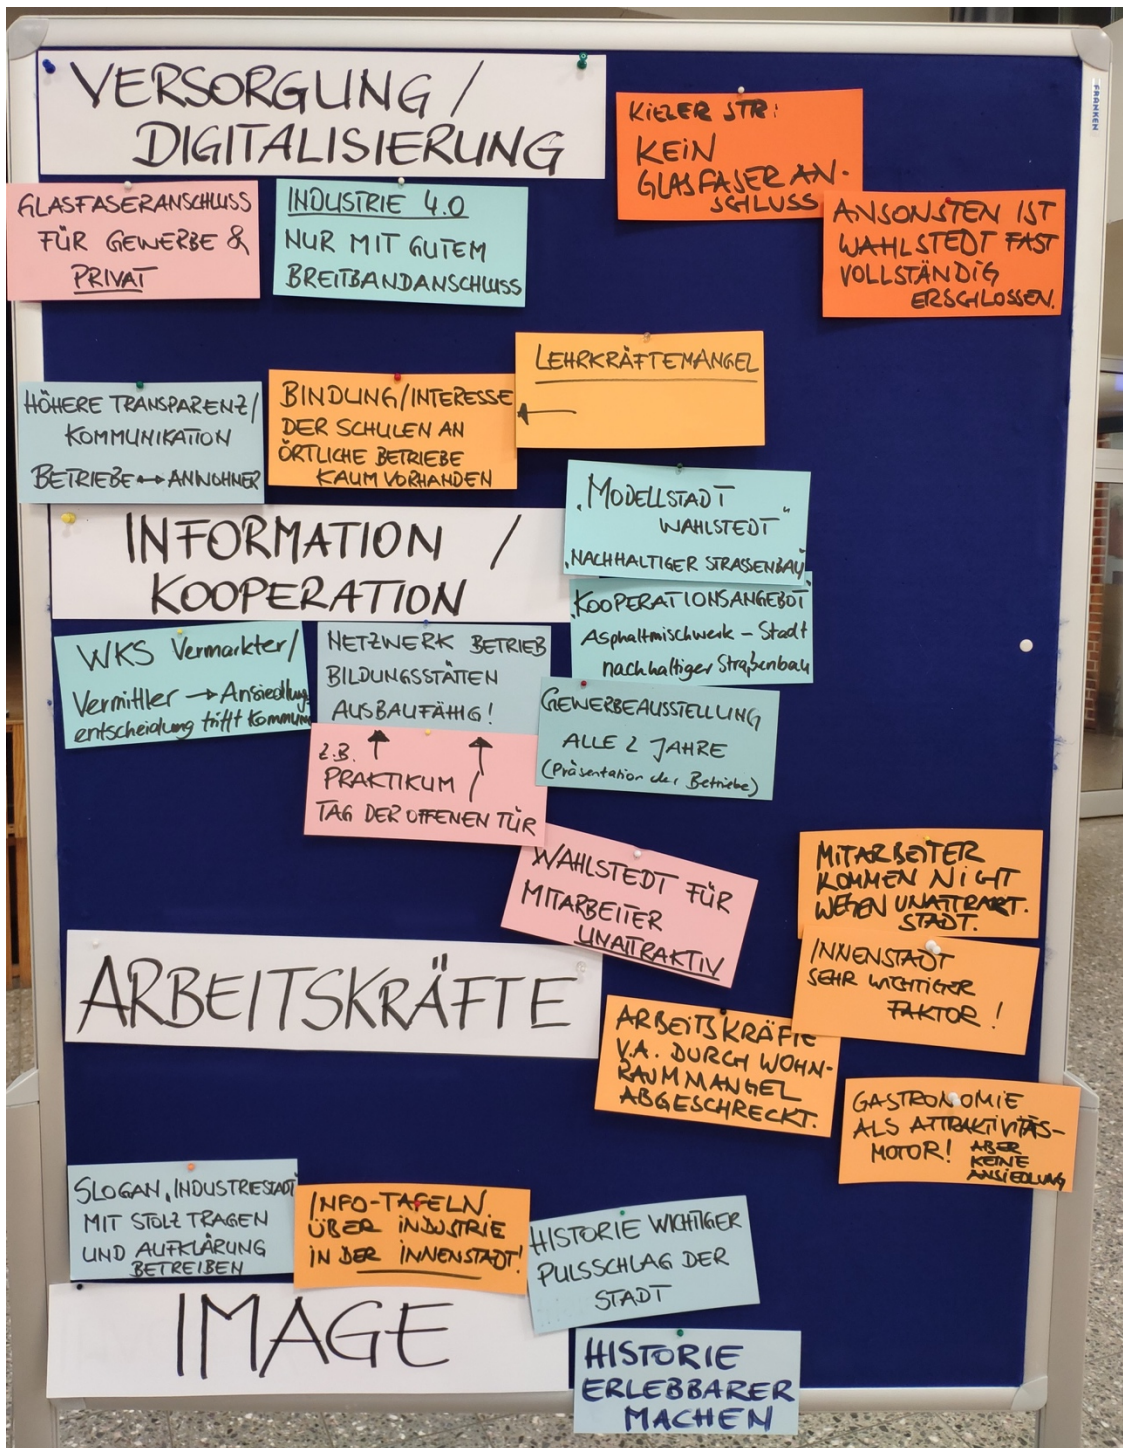 VERSORGUNG /
DIGITALISIERUNG
FRANKEN
KIELER STR:
KEIN
GLASFASER AN-
SCHLUSS
ANSONSTEN IST
WAHLSTEDT FAST
VOLLSTÄNDIG
ERSCHLOSSEN.
GLASFASERANSCHLUSS
FÜR GEWERBE &
PRIVAT
INDUSTRIE 4.0
NUR MIT GUTEM
BREITBANDANSCHLUSS
LEHRKRÄFTEMANGEL
←
HÖHERE TRANSPARENZ/
KOMMUNIKATION
BETRIEBE ↔ ANWOHNER
BINDUNG/INTERESSE
DER SCHULEN AN
ÖRTLICHE BETRIEBE
KAUM VORHANDEN
„MODELLSTADT
WAHLSTEDT“
„NACHHALTIGER STRASSENBAU“
INFORMATION /
KOOPERATION
„KOOPERATIONSANGEBOT
Asphaltmischwerk – Stadt
nachhaltiger Straßenbau
WKS Vermarkter/
Vermittler → Ansiedlung
entscheidung trifft Kommune
NETZWERK BETRIEB
BILDUNGSSTÄTEN
AUSBAUFÄHIG!
GEWERBEAUSSTELLUNG
ALLE 2 JAHRE
(Präsentation der Betriebe)
z.B.
PRAKTIKUM /
TAG DER OFFENEN TÜR
WAHLSTEDT FÜR
MITARBEITER
UNATTRAKTIV
MITARBEITER
KOMMEN NICHT
WEGEN UNATTRAKT.
STADT.
INNENSTADT
SEHR WICHTIGER
FAKTOR !
ARBEITSKRÄFTE
ARBEITSKRÄFTE
V.A. DURCH WOHN-
RAUMMANGEL
ABGESCHRECKT.
GASTRONOMIE
ALS ATTRAKTIVITÄS-
MOTOR! ABER
KEINE
ANSIEDLUNG
SLOGAN „INDUSTRIESTADT“
MIT STOLZ TRAGEN
UND AUFKLÄRUNG
BETREIBEN
INFO-TAFELN
ÜBER INDUSTRIE
IN DER INNENSTADT!
HISTORIE WICHTIGER
PULSSCHLAG DER
STADT
IMAGE
HISTORIE
ERLEBBARER
MACHEN